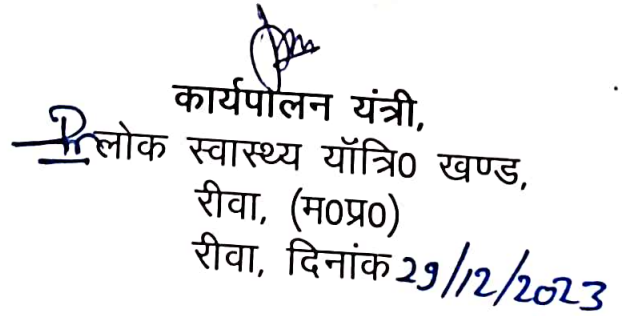 कार्यपालन यंत्री,
लोक स्वास्थ्य यॉत्रि0 खण्ड,
रीवा, (म0प्र0)
रीवा, दिनांक 29/12/2023